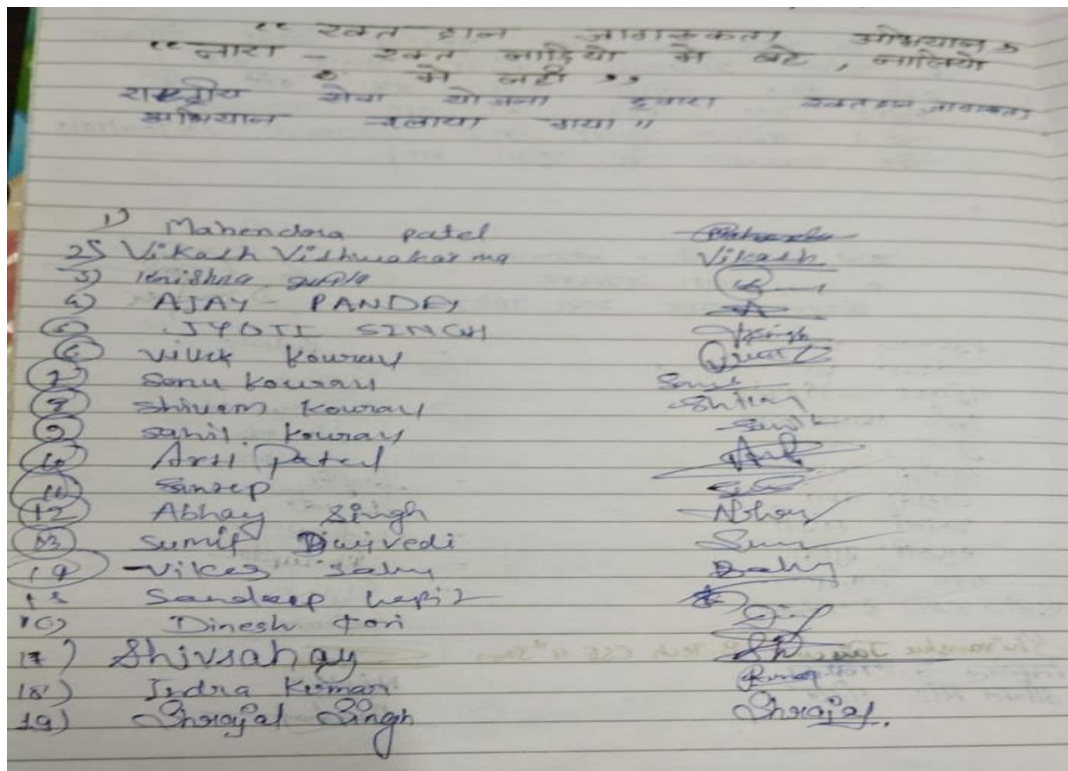 “ रक्त दान जागरूकता अभियान ”
“ नारा - रक्त नाड़ियो मे बहे , नालियो
मे नही ”
राष्ट्रीय सेवा योजना द्वारा रक्तदान जागरूकता
अभियान चलाया गया "
1) Mahendra patel
2) Vikash Vishwakarma Vikash
3) Krishna gupta
4) AJAY PANDEY
5) JYOTI SINGH JSingh
6) Vivek Kourav
7) Sonu Kourav Sonu
8) Shivam Kourav Shivam
9) Sahil Kourav Sahil
10) Arti Patel Arti
11)
12) Abhay Singh Abhay
13) Sumit Dwivedi
14) Vikas Sahu Sahu
15) Sandeep
16) Dinesh
17) Shivsahay
18) Indra Kumar Kumar
19) Shrajal Singh Shrajal.